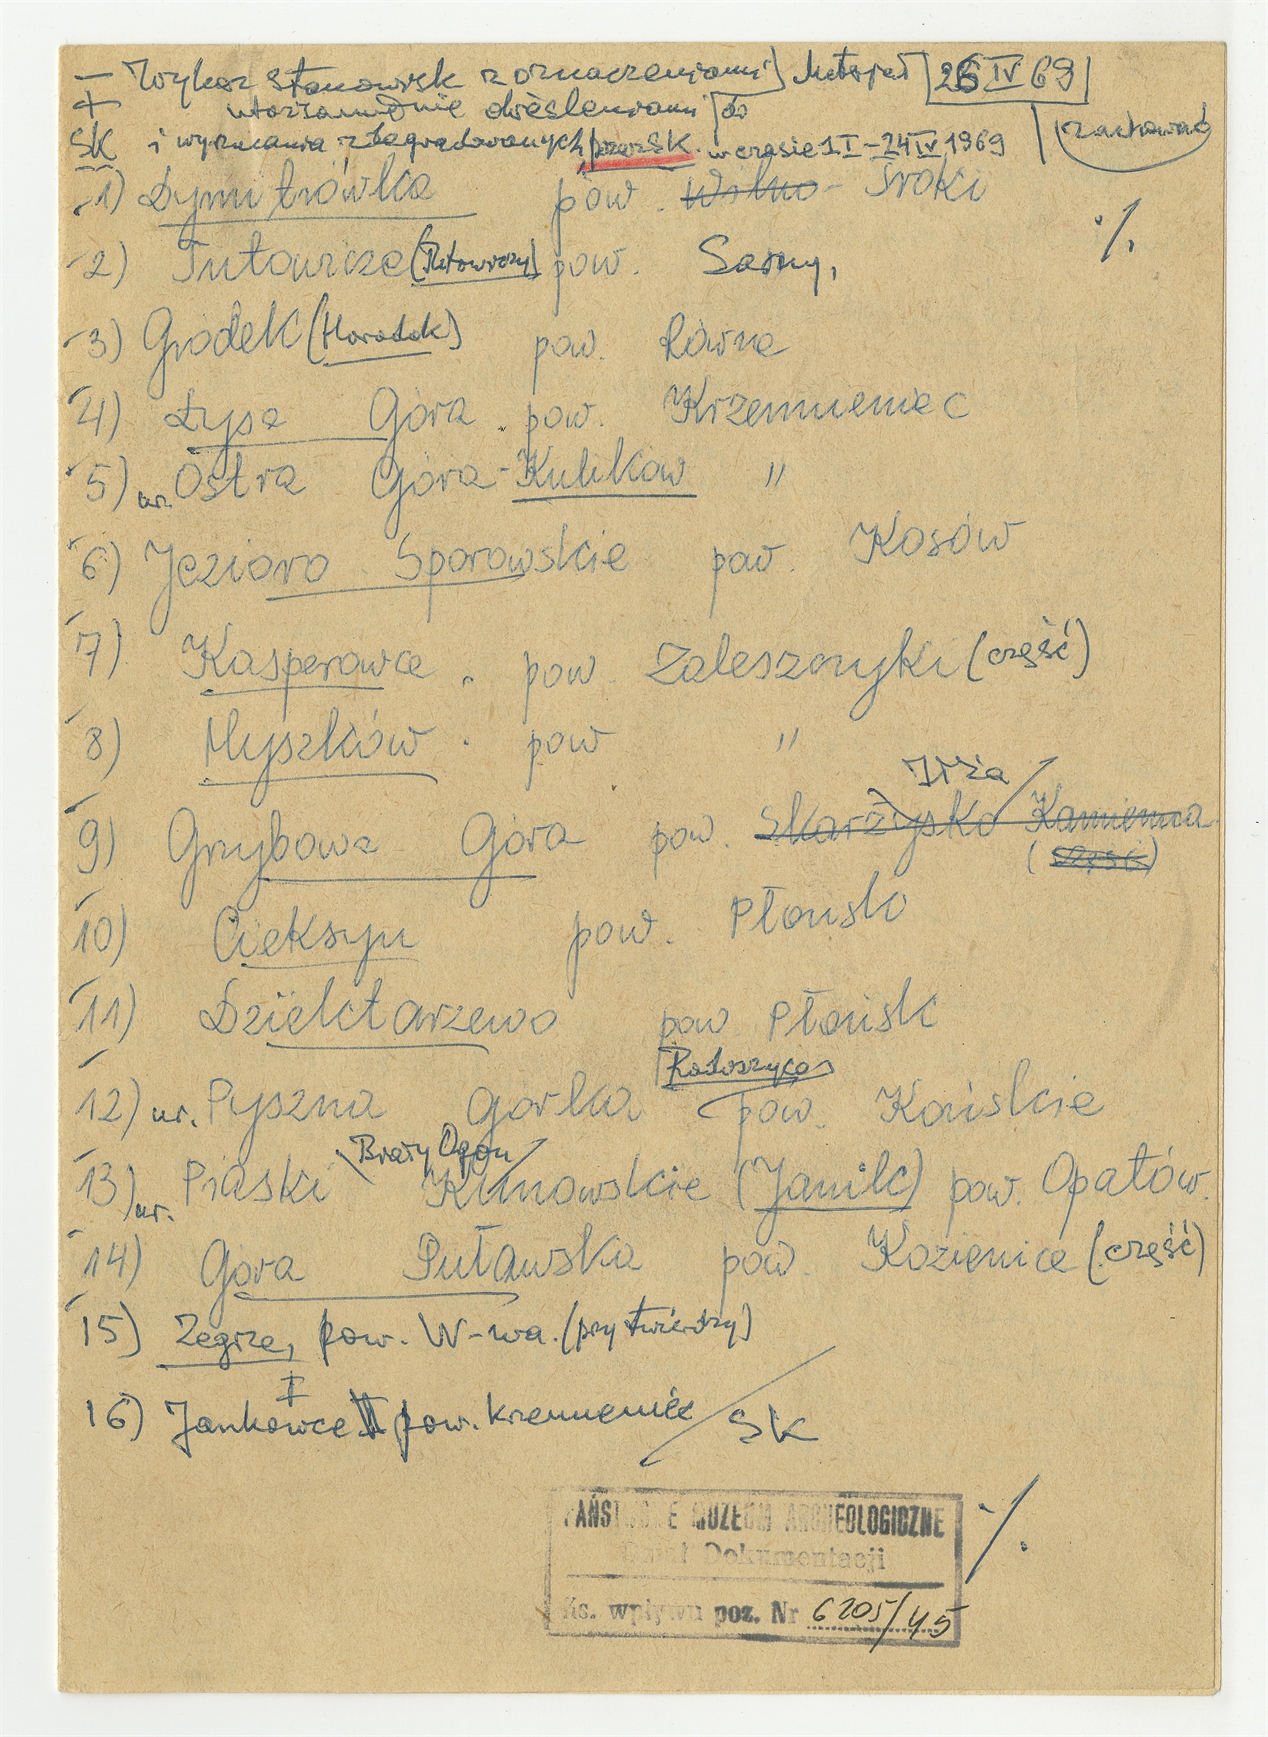 — Wykaz stanowisk z oznaczeniami Materiał 26 IV 69
+ utożsamienie określeniami do
SK i wyrzucania zdegradowanych przez SK. w czasie 1 I – 24 IV 1969 zachować
1) Dymitrówka pow. Wilno - Troki
·/.
2) Tutowicze (Tutowiczy) pow. Sarny,
3) Gródek (Horodok) pow. Równe
4) Łysa Góra . pow. Krzemieniec
5) ur. Ostra Góra - Kulików "
6) Jezioro Sporowskie pow. Kosów
7) Kasperowce . pow Zaleszczyki (część)
8) Myszków . pow "
Iłża
9) Grzybowa Góra pow. Skarżysko Kamienna
(część)
10) Cieksyn pow. Płońsk
11) Dziektarzewo pow Płońsk
Radoszyce
12) ur. Pyszna Górka pow. Końskie
Brzeży Ogon
13) ur. Piaski Kunowskie (Janik) pow. Opatów.
14) Góra Puławska pow. Kozienice (część)
15) Zegrze, pow. W-wa. (przy twierdzy)
I
16) Jankowce II pow. Krzemieniec SK
PAŃSTWOWE MUZEUM ARCHEOLOGICZNE
Dział Dokumentacji
Ks. wpływu poz. Nr 6205/45
·/.